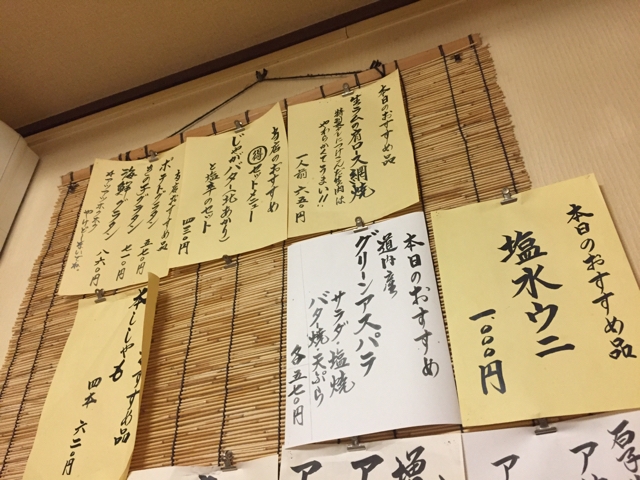 本日のおすすめ品
塩水ウニ
一、〇〇〇円
本日のおすすめ
道内産
グリーンアスパラ
サラダ・塩焼
バター焼・天ぷら
各五七〇円
本日のおすすめ品
生ラムの肩ロース網焼
やわらかくてうまい!!
一人前 六五〇円
当店のおすすめ
得セットメニュー
じゃがバター(北あかり)
と塩辛のセット
四三〇円
当店おすすめ品
ポテトグラタン
五七〇
海鮮グラタン
八六〇円
すすめ品
ししゃも
四本 六二〇円
増
ア
ア
ア
ア